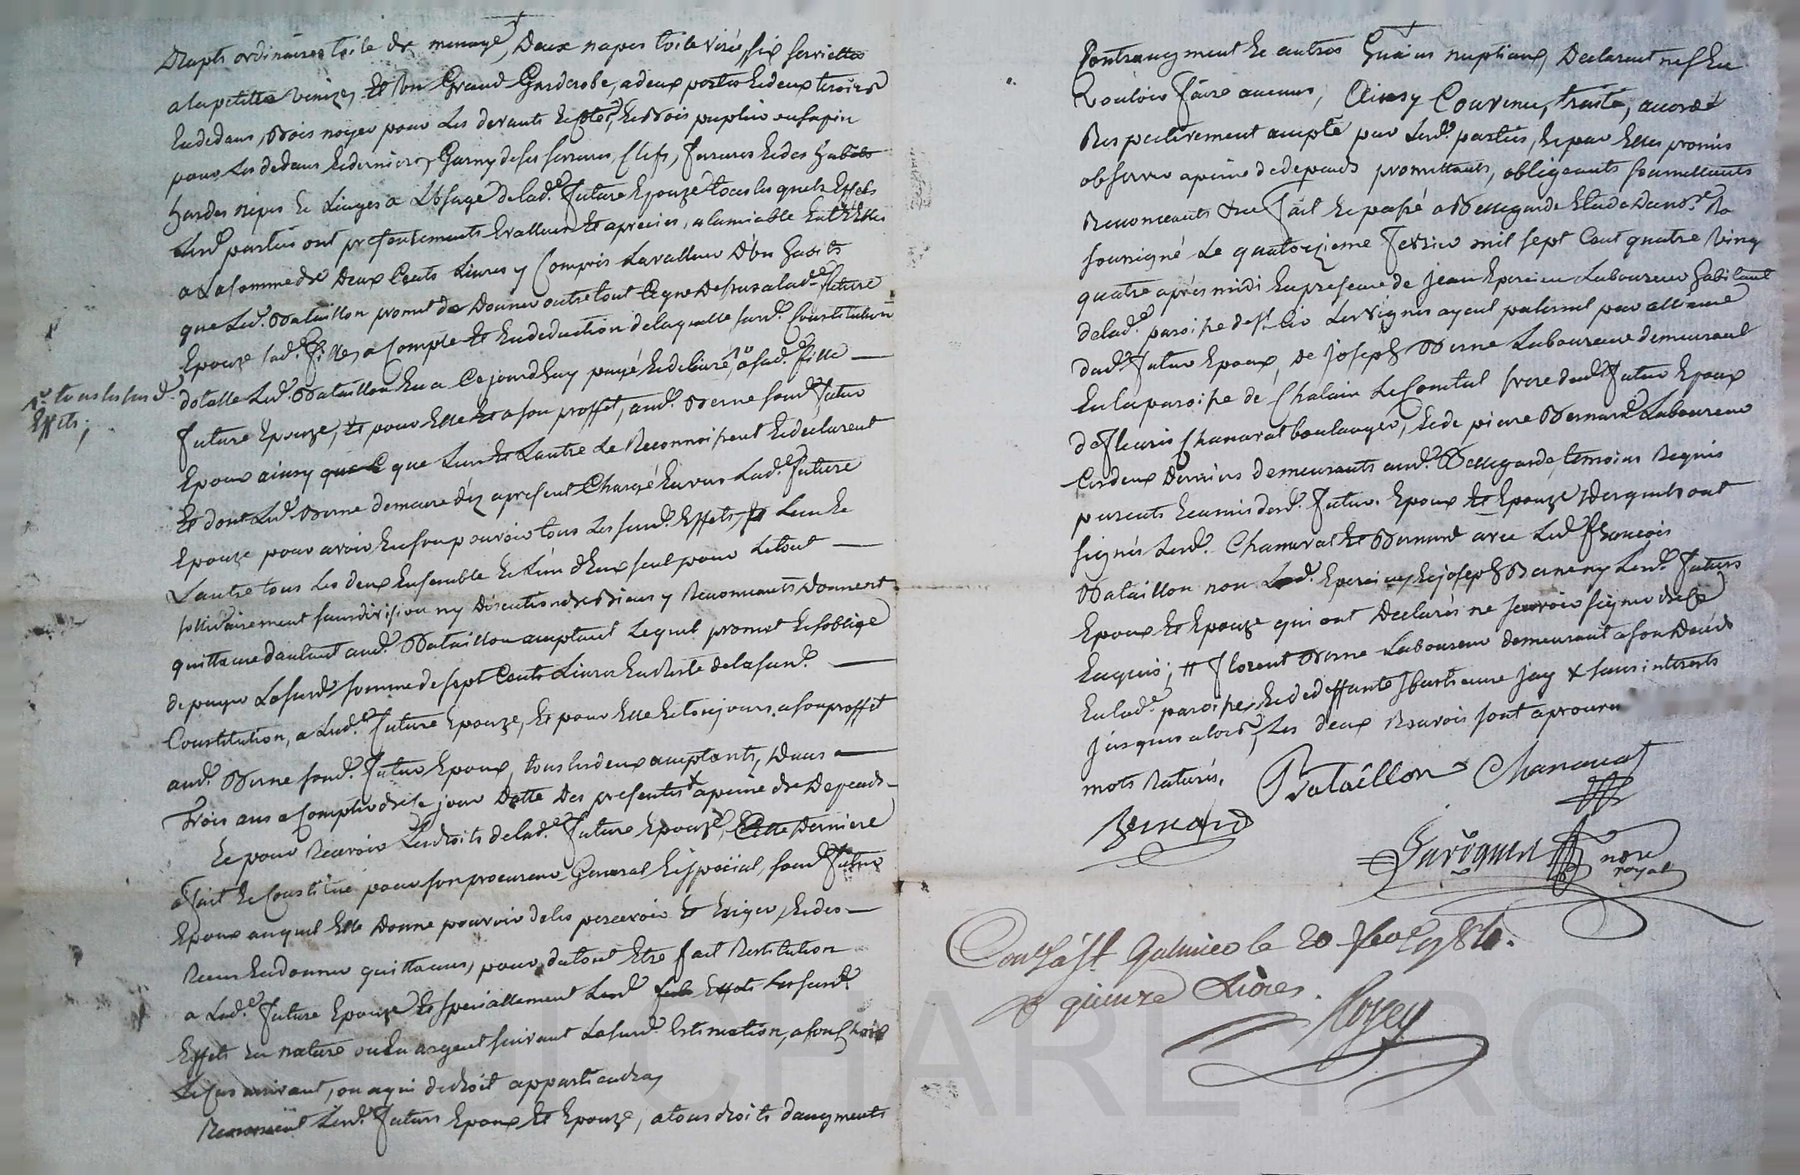 Drapts ordinaires toile de menage, Deux napes toile Virée, six serviettes
a la petitte Venize, Et un Grand Garderobe, a deux portes Et deux tiroirs
Endedans, Bois noyer pour Les devants Et cotés, Et Bois puplier ou sapin
pour Les dedans Et dernier, Garny de ses serrures, Clefs, ferrures Et des habits
hardes nipes Et Linges a L'Usage de lad.e future Epouze tous lesquels Effets
Lesd. parties ont presentements Evallués Et apreciés, a lamiable Entr'Elles
a La somme de Deux Cents Livres y Compris La valleur d'un habits
que Led. Bataillon promet de Donner outre tout Ce que Dessus a lad.e future
Epouze sad.e fille, a Compte Et En deduction de laquelle susd. Constitution
dotalle Led. Bataillon En a Cejourd'huy payé Et delivré, a sad.e fille
√ tous les susd.
Effets;
future Epouze, Et pour Elle Et a son proffit, aud. Berne sond. futur
Epoux ainsy que C que L'un Et L'autre Le Reconnoissent Et declarent
Et dont Led. Berne demeure dèz apresent Chargé Envers Lad.e future
Epouze pour avoir En son pouvoir tous Les susd. Effets, Et L'un Et
L'autre tous Les deux Ensemble Et L'un d'Eux seul pour Le tout
sollidairement sans division ny Discution de Biens y Renonceants Donnent
quittance d'autant aud. Bataillon acceptant Lequel promet Et s'oblige
de payer La susd.e somme de sept Cents Livres En Reste de la susd.
Constitution, a Lad.e future Epouze, Et pour Elle Et toujours a son proffit
aud. Berne sond. futur Epoux, tous les deux acceptants, Dans
Trois ans a Compter de Ce jour Datte Des presentes a peine de Depends
Et pour Recevoir Les droits de lad.e future Epouze, Cette Derniere
a fait Et Constitué pour son procureur General Et special, sond. futur
Epoux auquel Elle Donne pouvoir de les percevoir Et Exiger, Et des
Reçus En donner quittances, pour du tout Etre fait Restitution
a Lad.e future Epouze Et speciallement Lesd. Effets Les susd.
Effets En nature ou En argent suivant La susd. Estimation, a son Choix
Le Cas arrivant, ou a qui de droit appartiendra,
Renoncent Lesd. futurs Epoux Et Epouze, a tous droits d'augments
Contraugment Et autres Gains nuptiaux Declarant ne s'En
Vouloir faire aucuns, Ainsy Convenu, traité, accordé
Respectivement accepté par Lesd. parties, Et par Elles promis
observer a peine de depends promettants, obligeants soumettants
Renonceants &ce fait Et passé a Bellegarde Etude Du no.re Ro
soussigné Le quatorzieme fevrier mil sept Cent quatre Vingt
quatre après midi En presence de Jean Epercieu Laboureur habitant
dud. futur Epoux, de Joseph Berne Laboureur demeurant
En la paroisse de Chalain Le Comtal frere dud. futur Epoux
de fleuris Chanavat boulanger, Et de pierre Bernard Laboureur
Ces deux Derniers demeurants aud. Bellegarde, temoins Requis
parents Et amis desd. futurs Epoux Et Epouze Desquels ont
signés Lesd. Chanavat Et Bernard avec Led. francois
Bataillon non Led. Epercieu, Et Joseph Berne ny Lesd. futurs
Epoux Et Epouze qui ont Declarés ne sçavoir signer de Ce
Enquis; # florent Berne Laboureur demeurant a son Deceds
En lad.e paroisse, Et de deffunte Jay x sans interests
jusques alors, Les deux Renvois sont aprouvu
mots Raturés.
Bataillon Chanavat
Bernard
no.re
royal
Con.lé a St. Galmier le 20 fev.er 1784.
R. quinze Livres.